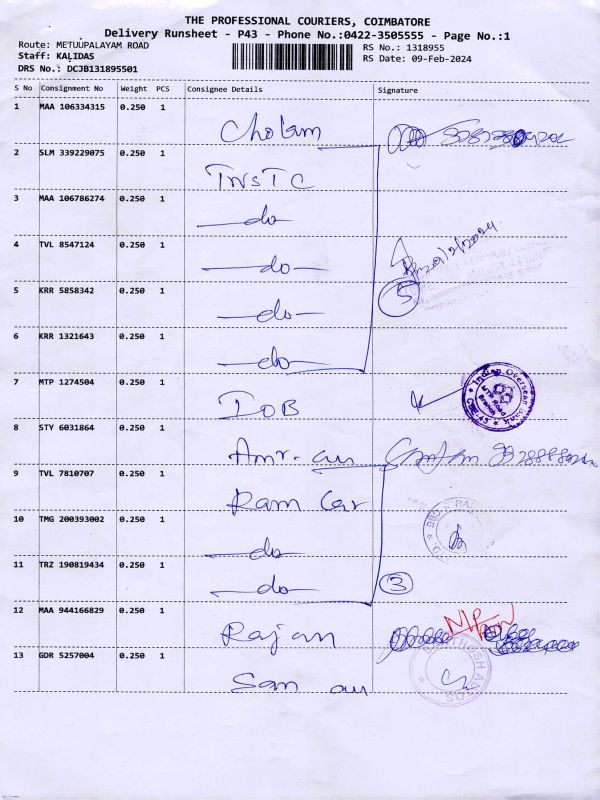 THE PROFESSIONAL COURIERS, COIMBATORE
Delivery Runsheet - P43 - Phone No.:0422-3505555 - Page No.:1
Route: METUUPALAYAM ROAD
RS No.: 1318955
Staff: KALIDAS
RS Date: 09-Feb-2024
DRS No.: DCJB131895501
S No Consignment No Weight PCS Consignee Details Signature
1 MAA 106334315 0.250 1
Cholam
2 SLM 339229075 0.250 1
TNSTC
3 MAA 106786274 0.250 1
do
4 TVL 8547124 0.250 1
do
5 KRR 5858342 0.250 1
5
do
6 KRR 1321643 0.250 1
do
7 MTP 1274504 0.250 1
Indian Overseas Bank
MTP Road
Branch
CBE-43
IOB
8 STY 6031864 0.250 1
9 TVL 7810707 0.250 1
Ram Car
10 TMG 200393002 0.250 1
do
11 TRZ 190819434 0.250 1
3
do
12 MAA 944166829 0.250 1
Rajan
13 GDR 5257004 0.250 1